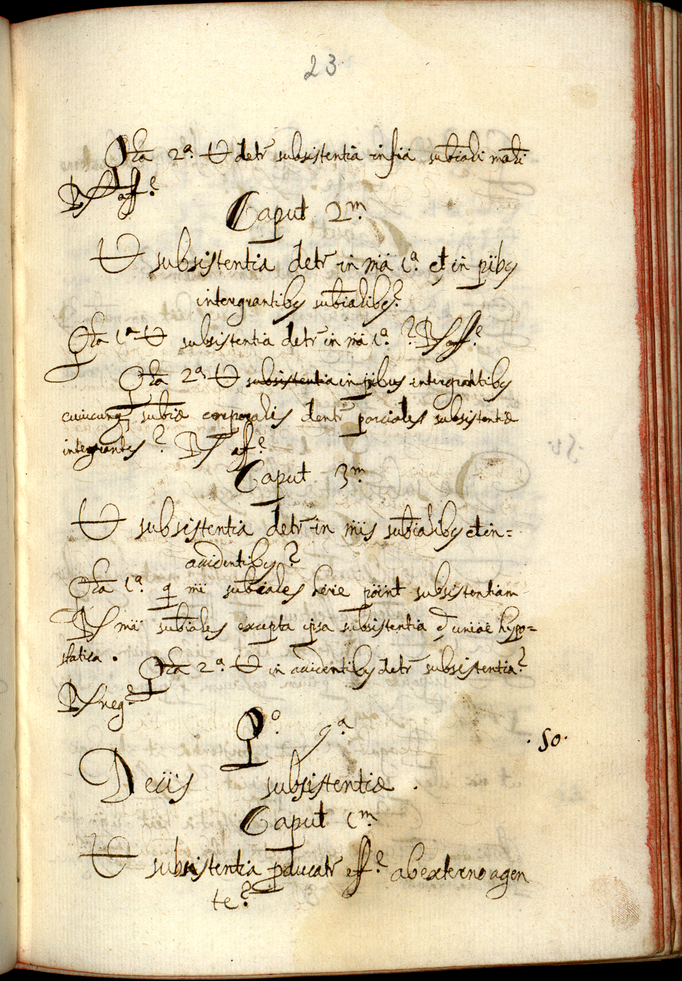 23
Qta 2ª. U detr subsistentia in fiã subiali mãli
Rs aff.e
Caput 2m.
U subsistentia detr in mã 1ª. et in ptibs
intergrantibs subialibs?
Qta 1ª U subsistentia detr in mã 1ª.? Rs aff.e
Qta 2ª U subsistentia in ptibus intergrantibs
cuiuscunq subiæ corporalis dentr parciales subsistentiæ
integrantes? Rs aff.e
Caput 3m.
U subsistentia detr in mis subialibs et in=
accidentibs?
Qta 1ª. q mi subeales herie point subsistentiam
Rs mi subiales excepta ipsa subsistentia et uniæ hypo=
statica. Qta 2ª. U in accidentibs detr subsistentia?
Rs neg.e
Qo 9ª
.50.
De iis subsistentiæ.
Caput 1m.
U subsistentia pducatr eff.e ab externo agen
te?